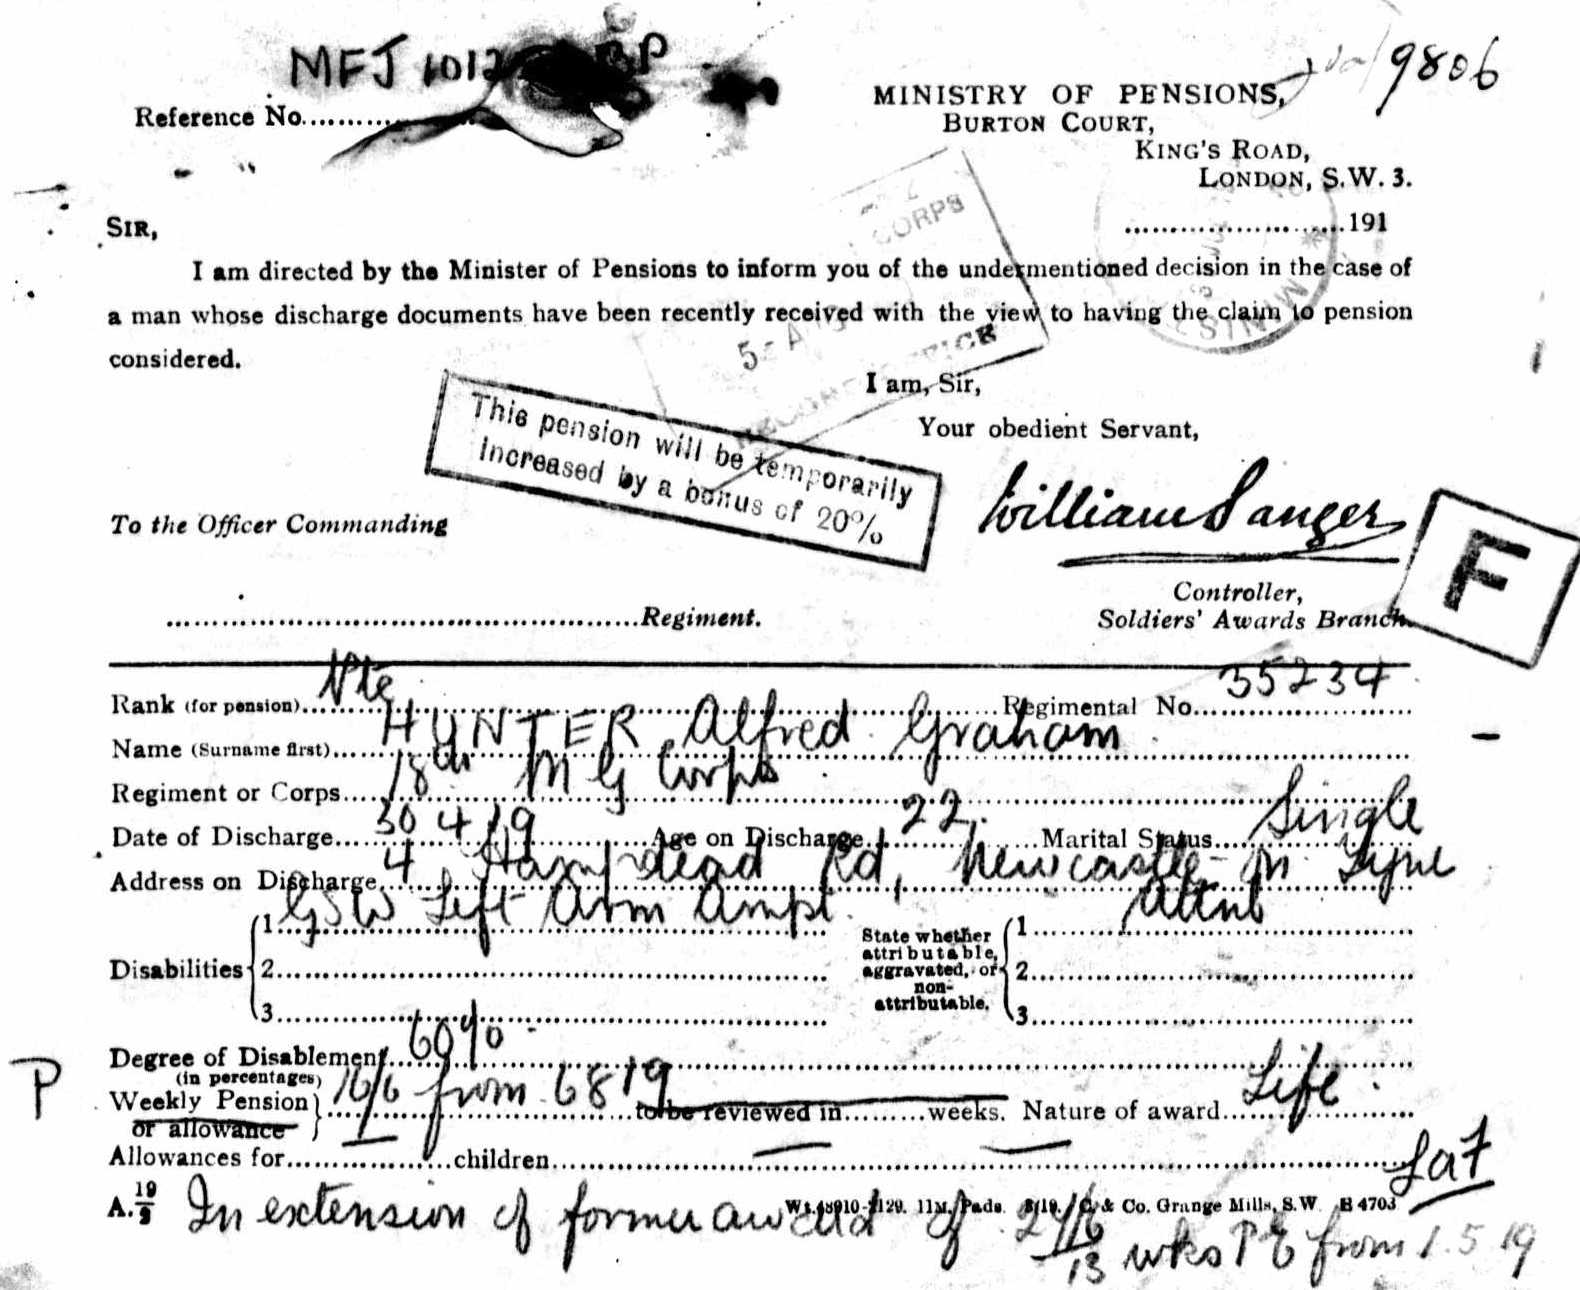 MFJ 1012 BP
9806
Reference No..................
MINISTRY OF PENSIONS,
BURTON COURT,
KING'S ROAD,
LONDON, S.W. 3.
........................191
SIR,
CORPS
I am directed by the Minister of Pensions to inform you of the undermentioned decision in the case of
a man whose discharge documents have been recently received with the view to having the claim to pension
considered.
5- AUG
MINIST
I am, Sir,
Your obedient Servant,
This pension will be temporarily
increased by a bonus of 20%
William Sanger
To the Officer Commanding
F
Controller,
Soldiers' Awards Branch.
....................................................Regiment.
Rank (for pension) Pte Regimental No. 35234
Name (Surname first) HUNTER Alfred Graham
Regiment or Corps 18th M G Corps
Date of Discharge 30 4 19 Age on Discharge 22. Marital Status Single
Address on Discharge 4 Hampstead Rd, Newcastle-on-Tyne
Disabilities 1 GSW Left Arm Ampt. State whether attributable, aggravated, or non-attributable. 1 Attrib
2 2
3 3
Degree of Disablement 60%
(in percentages)
P
Weekly Pension or allowance 16/6 from 6 8 19 to be reviewed in.........weeks. Nature of award Life
Allowances for..................children
A. 19/9 Wt. 48910-1129. 11M. Pads. 3/19. C. & Co. Grange Mills, S.W. H 4703
In extension of former award of wks from 1.5.19
13